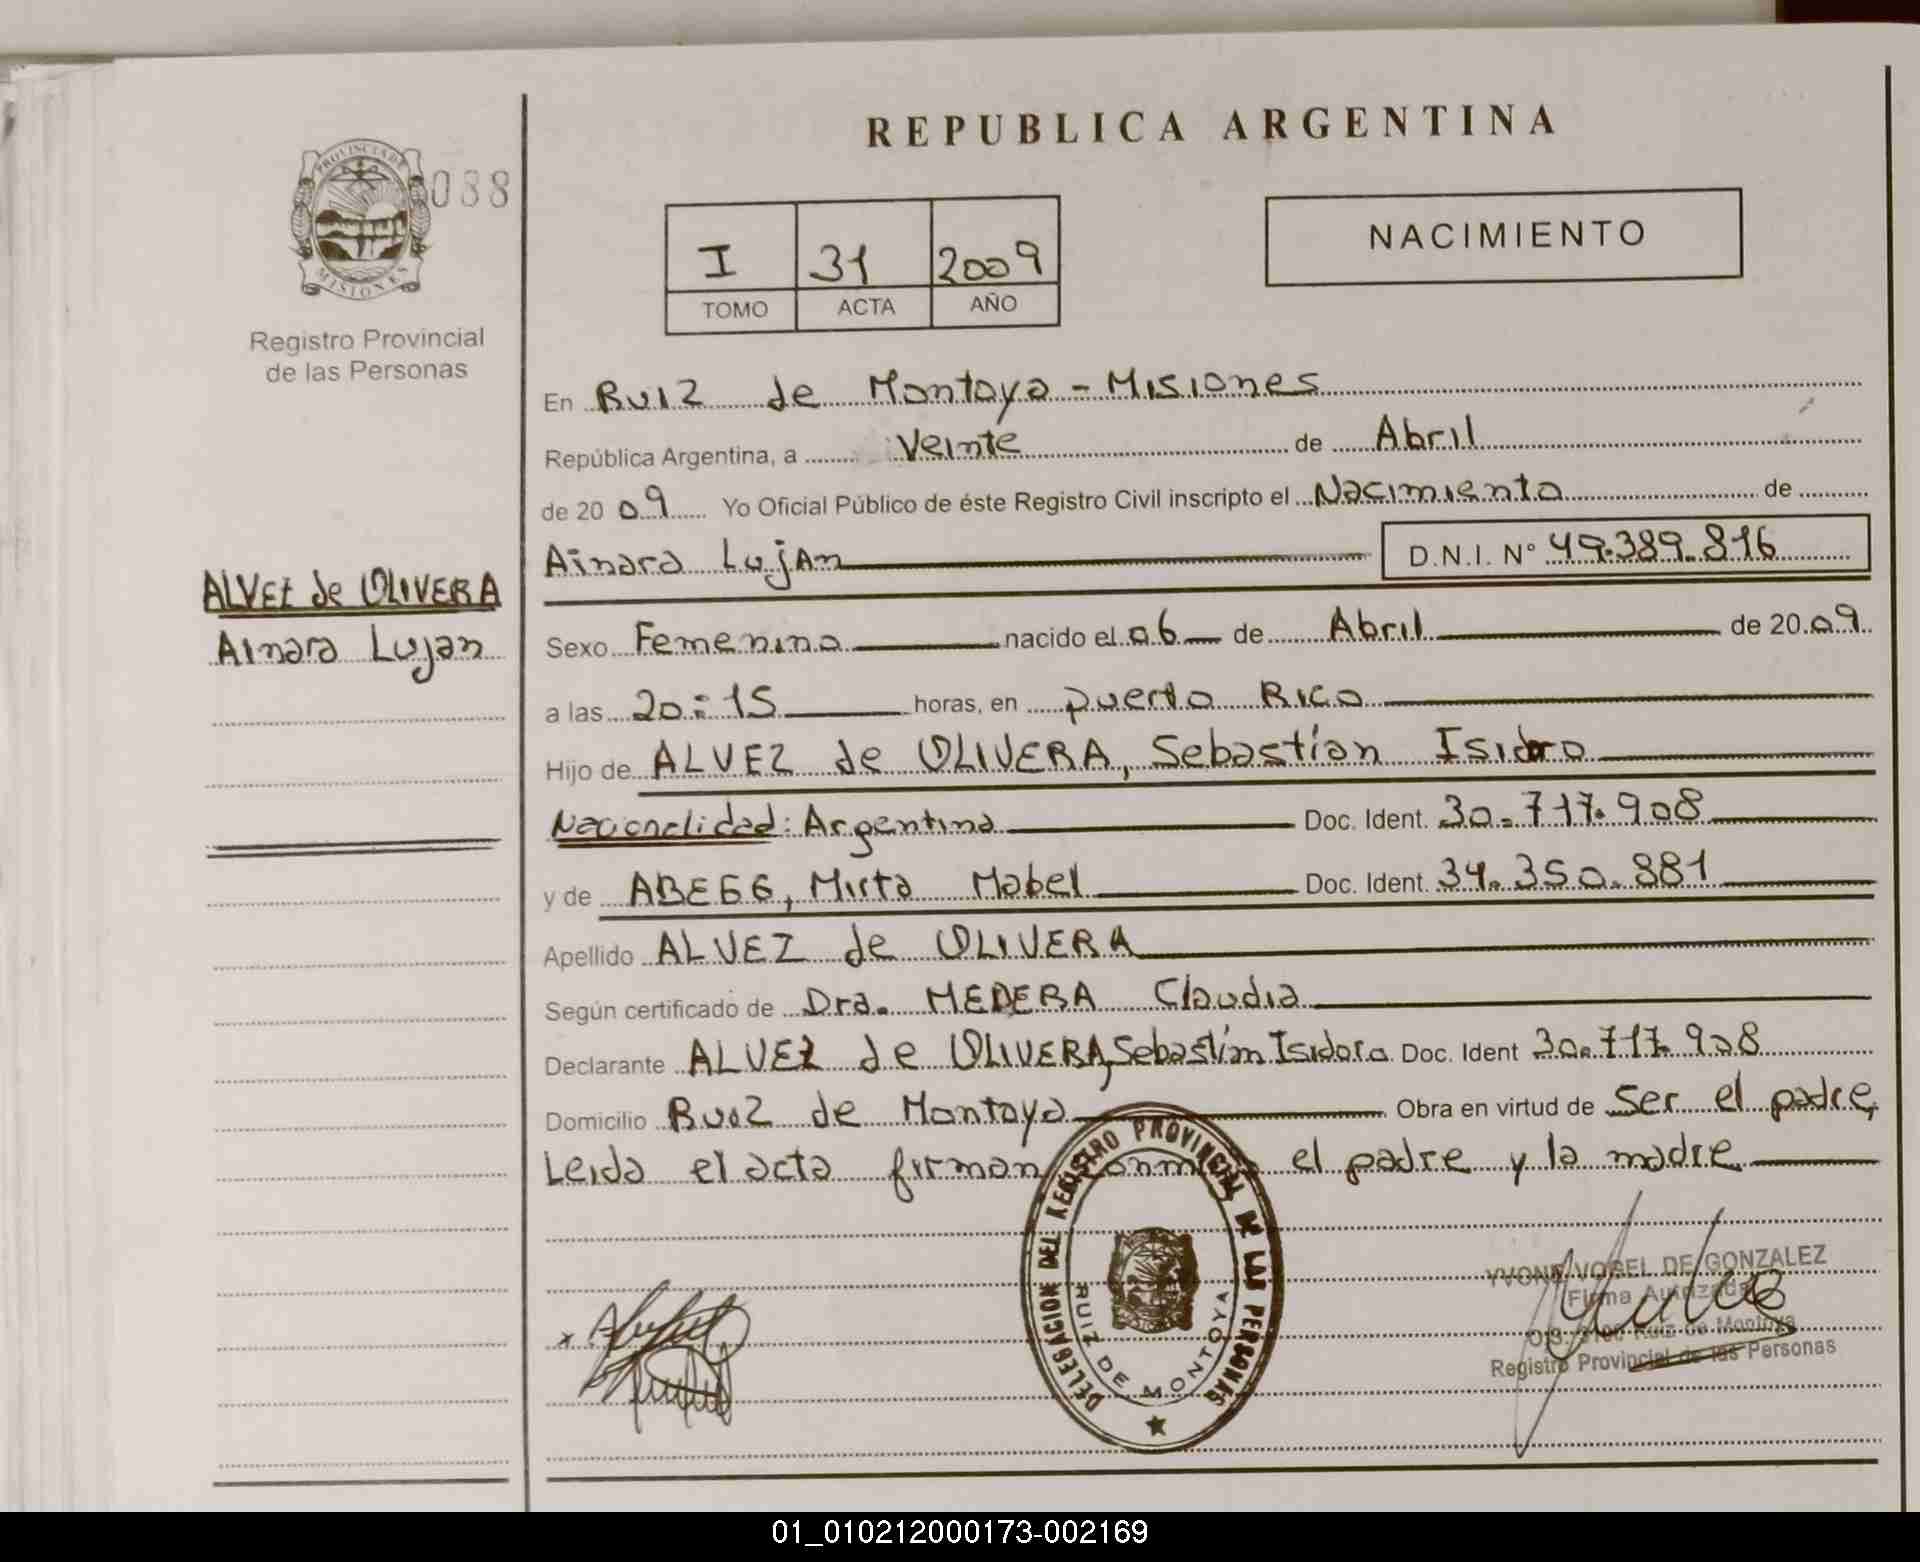 REPUBLICA ARGENTINA
PROVINCIA DE
MISIONES
088
Registro Provincial
de las Personas
I 31 2009
TOMO ACTA AÑO
NACIMIENTO
En Ruiz de Montoya - Misiones
República Argentina, a Veinte de Abril
de 20 09 Yo Oficial Público de éste Registro Civil inscripto el Nacimiento de
Ainara Lujan D.N.I. N° 49.389.816
ALVEZ de OLIVERA
Ainara Lujan
Sexo Femenino nacido el 06 de Abril de 20 09
a las 20:15 horas, en puerto Rico
Hijo de ALVEZ de OLIVERA, Sebastian Isidro
Nacionalidad: Argentina Doc. Ident. 30.717.908
y de ABEGG, Mirta Mabel Doc. Ident. 34.350.881
Apellido ALVEZ de OLIVERA
Según certificado de Dra. MEDERA Claudia
Declarante ALVEZ de OLIVERA, Sebastian Isidoro Doc. Ident 30.717.908
Domicilio Ruiz de Montoya Obra en virtud de ser el padre,
Leida el acta firman el padre y la madre
DELEGACION DEL REGISTRO PROVINCIAL DE LAS PERSONAS
RUIZ DE MONTOYA
YVONE VOGEL DE GONZALEZ
Firma Autorizada
Ruiz de Montoya
Registro Provincial de las Personas
01_010212000173-002169